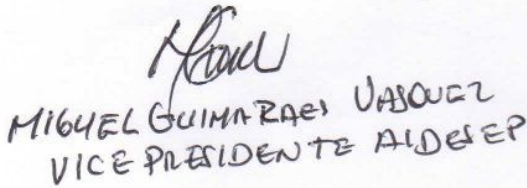 MIGUEL GUIMARAES VASQUEZ
VICE PRESIDENTE AIDESEP